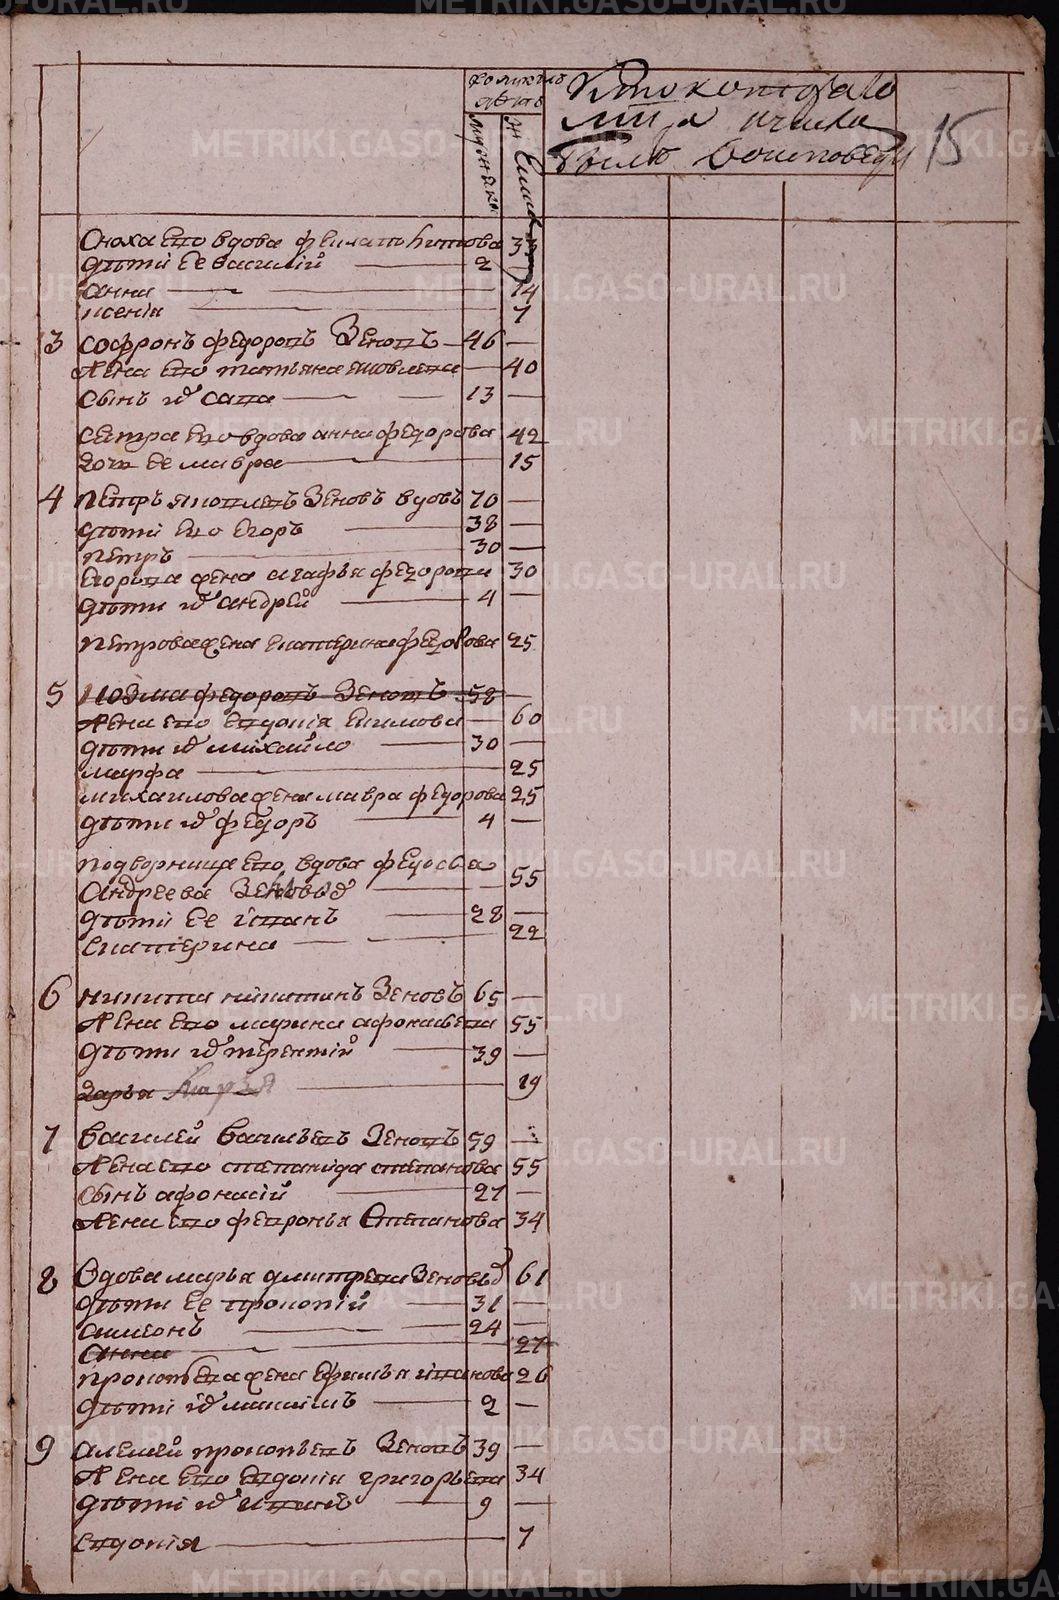 METRIKI.GASO-URAL.RU
Ктокоторало
числа
15
былъ воисповеди
мужеска
женска
Сноха ево вдова 37
дѣти ее василий 2
анна 14
ксения 7
3 софронъ федоровъ Зеновъ 46
жена ево татьяна яковлева 40
сынъ их сава 13
сестра ево вдова анна федорова 42
дочь ее мавра 15
4 петръ яковлевъ Зеновъ вдовъ 70
дѣти ево егоръ 38
петръ 30
егорова жена агафья федорова 30
дѣти их андрей 4
петрова жена екатерина федорова 25
5 козма федоровъ Зеновъ 58
жена ево евдокия екимова 60
дѣти их михайло 30
марфа 25
михаилова жена мавра федорова 25
дѣти их федоръ 4
подворница ево вдова федосья
Андреева Зеновых 55
дѣти ее иванъ 28
екатерина 22
6 никита никитинъ Зеновъ 65
жена ево марина афонасьева 55
дѣти их терентий 39
дарья 19
7 василей васильевъ Зеновъ 59
жена ево степанида степанова 55
сынъ афонасий 27
жена ево февронья Степанова 34
8 Вдова марья дмитрева Зеновых 61
дѣти ее прокопий 31
симеонъ 24
анна 27
прокопева жена ефимья иванова 26
дѣти их максимъ 2
9 алексей прокопьевъ Зеновъ 39
жена ево евдокия григорьева 34
дѣти их 9
евдокия 7